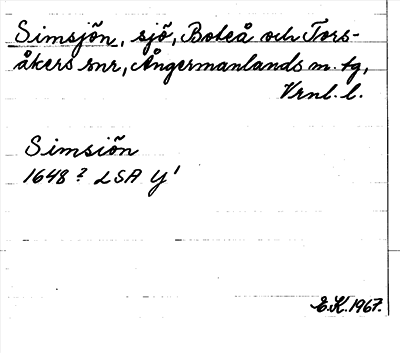 Simsjön, sjö, Boteå och Tors-
åkers snr, Ångermanlands m. tg,
Vrnl. l.
Simsiön
1648? LSA Y¹
E.K. 1967.